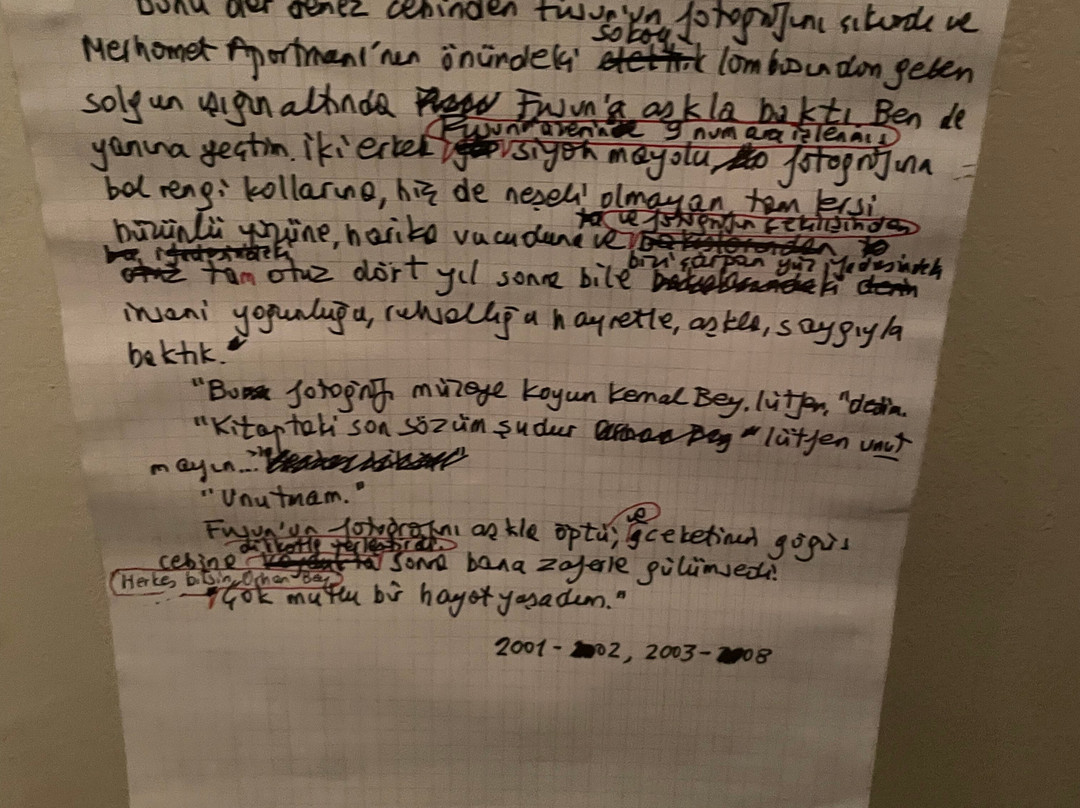 Bunu der demez cebinden Füsun'un fotoğrafını çıkardı ve
sokak
Merhamet Apartmanı'nın önündeki elektrik lambasından gelen
solgun ışığın altında Füsun'a aşkla baktı. Ben de
Füsun üzerinde 9 numara işlenmiş
yanına geçtim. İki erkek siyah mayolu, fotoğrafına
bal rengi kollarına, hiç de neşeli olmayan, tam tersi
ve fotoğrafın çekilişinden
hüzünlü yüzüne, harika vücuduna ve
bizi çarpan yüz ifadesindeki
tam otuz dört yıl sonra bile
insani yoğunluğa, ruhsallığa hayretle, aşkla, saygıyla
baktık.
"Bu fotoğrafı müzeye koyun Kemal Bey, lütfen," dedim.
"Kitaptaki son sözüm şudur Orhan Bey " lütfen unut
mayın..."
"Unutmam."
ve
Füsun'un fotoğrafını aşkla öptü, ceketinin göğüs
dikkatle yerleştirdi.
cebine sonra bana zaferle gülümsedi!
Herkes bilsin, Orhan Bey
"Çok mutlu bir hayat yaşadım."
2001 - 2002, 2003 - 2008